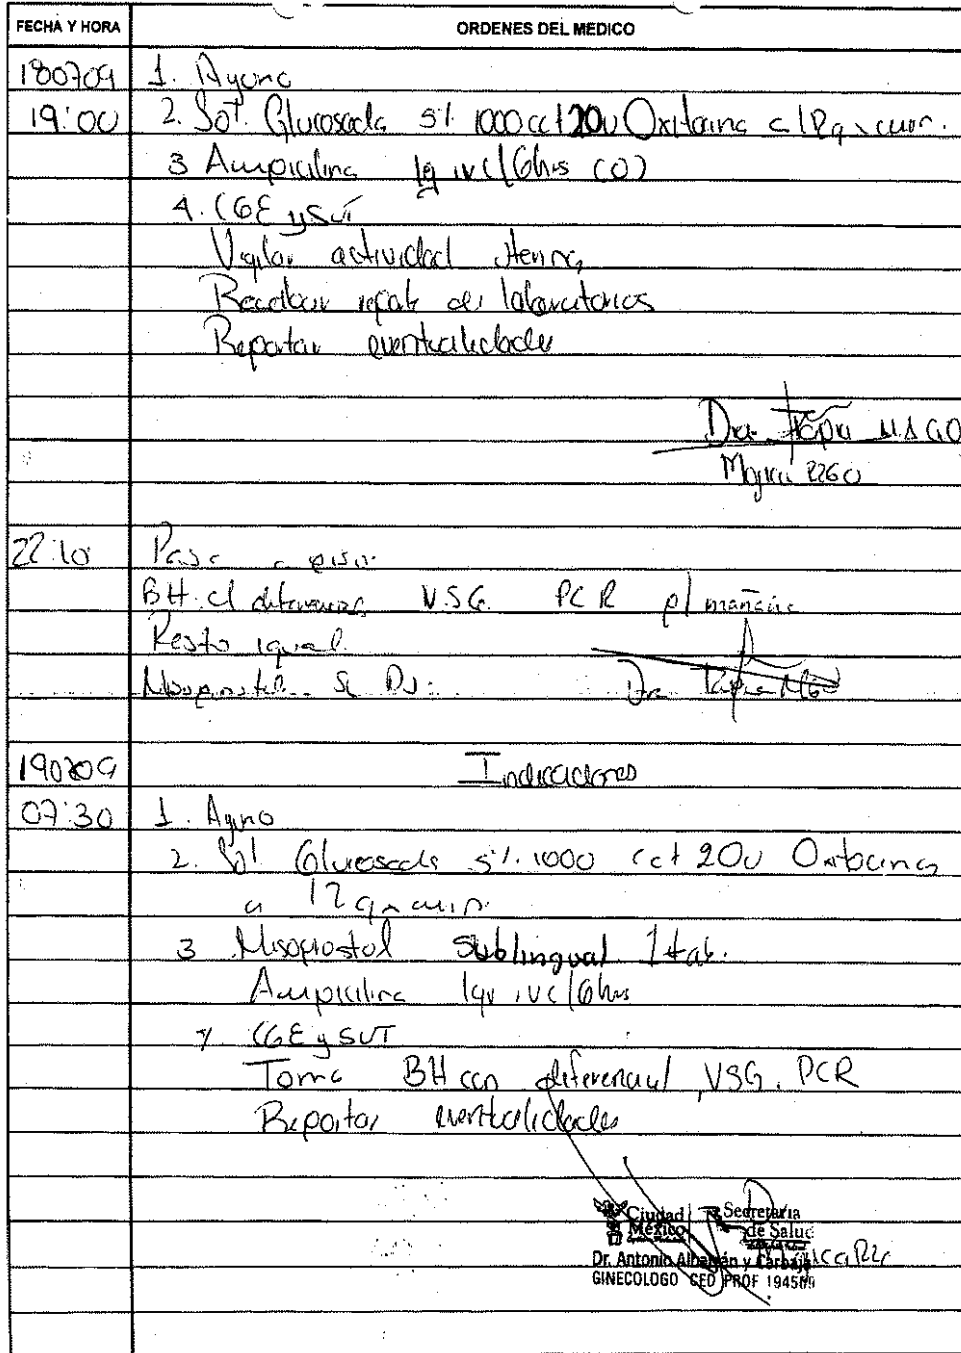 FECHA Y HORA ORDENES DEL MEDICO
180709 1. Ayuno
19:00 2. Sol. Glucosada 5% 1000 cc + 20u Oxitocina
3 Ampicilina 1g iv c/6hrs (0)
4. CGE y SVT
Vigilar actividad uterina
Recabar reporte de laboratorios
Reportar eventualidades
Dra. Tapia
22:10 Pasa a piso
BH c/ diferencial VSG PCR p/ mañana
Resto igual
Misoprostol
Dra Tapia
190709 Indicaciones
07:30 1. Ayuno
2. Sol Glucosada 5% 1000 cc + 20u Oxitocina
a 12
3 Misoprostol sublingual 1 tab.
Ampicilina 1gr iv c/6hrs
CGE y SVT
Toma BH con diferencial, VSG, PCR
Reportar eventualidades
Ciudad México Secretaría de Salud
Dr. Antonio Albarrán y Carbajal
GINECOLOGO CED PROF